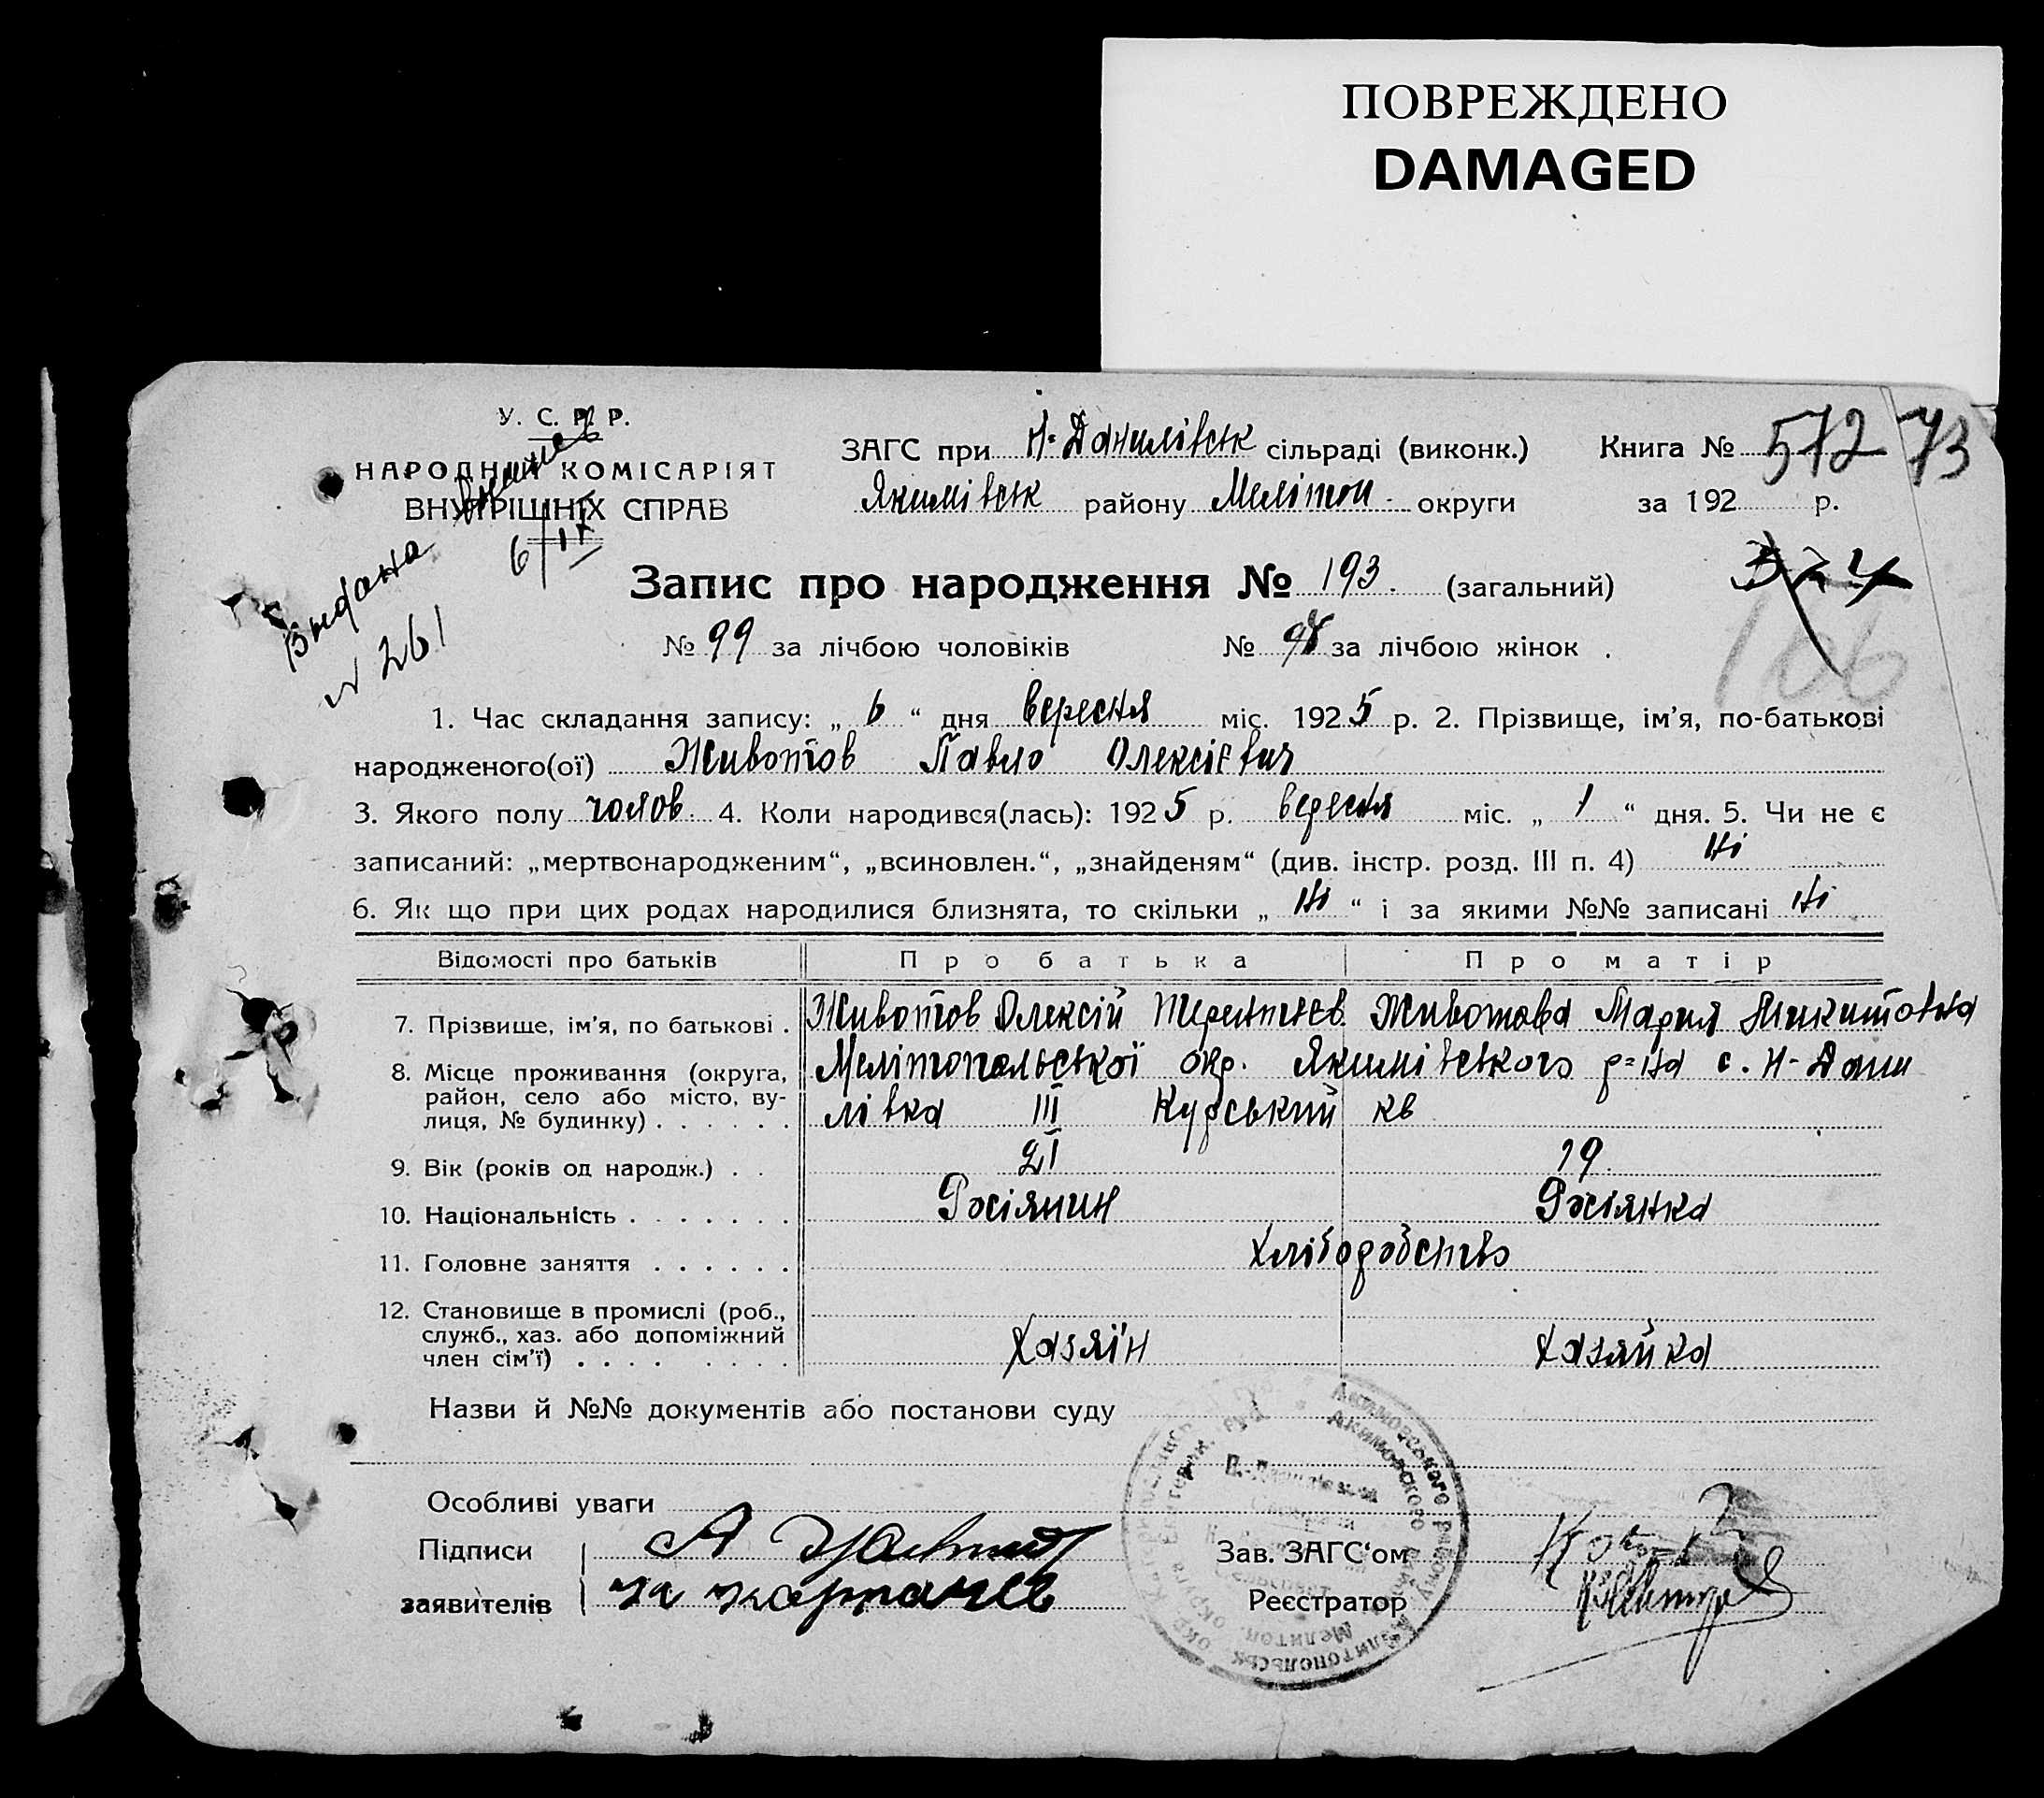 ПОВРЕЖДЕНО
DAMAGED
У. С. Р. Р.
НАРОДНИЙ КОМІСАРІЯТ
ВНУТРІШНІХ СПРАВ
Видана
6/IX
№ 261
ЗАГС при Н-Данилівськ сільраді (виконк.) Книга № 572 73
Якимівськ району Мелітоп. округи за 192 р.
Запис про народження № 193. (загальний) 324
106
№ 99 за лічбою чоловіків № за лічбою жінок .
1. Час складання запису: „ 6 “ дня вересня міс. 1925 р. 2. Прізвище, ім’я, по-батькові
народженого(ої) Животов Павло Олексієвич
3. Якого полу чолов. 4. Коли народився(лась): 1925 р. вересня міс. „ 1 “ дня. 5. Чи не є
записаний: „мертвонародженим“, „всиновлен.“, „знайденям“ (див. інстр. розд. III п. 4) Ні
6. Як що при цих родах народилися близнята, то скільки „ Ні “ і за якими №№ записані Ні
Відомості про батьків Про батька Про матір
7. Прізвище, ім’я, по батькові . Животов Олексій Терентиєв. Животова Мария Микитовна
8. Місце проживання (округа, район, село або місто, вулиця, № будинку) . . . . . . Мелітопольської окр. Якимівського р=на с. Н-Дани
лівка III Курський кв
9. Вік (років од народж.) . . 21 19
10. Національність . . . . . . . Росіянин Росіянка
11. Головне заняття . . . . . . Хліборобство
12. Становище в промислі (роб., служб., хаз. або допоміжний член сім’ї) . . . . Хазяїн Хазяйка
Назви й №№ документів або постанови суду
Особливі уваги
Підписи
заявителів
Зав. ЗАГС‘ом
Реєстратор